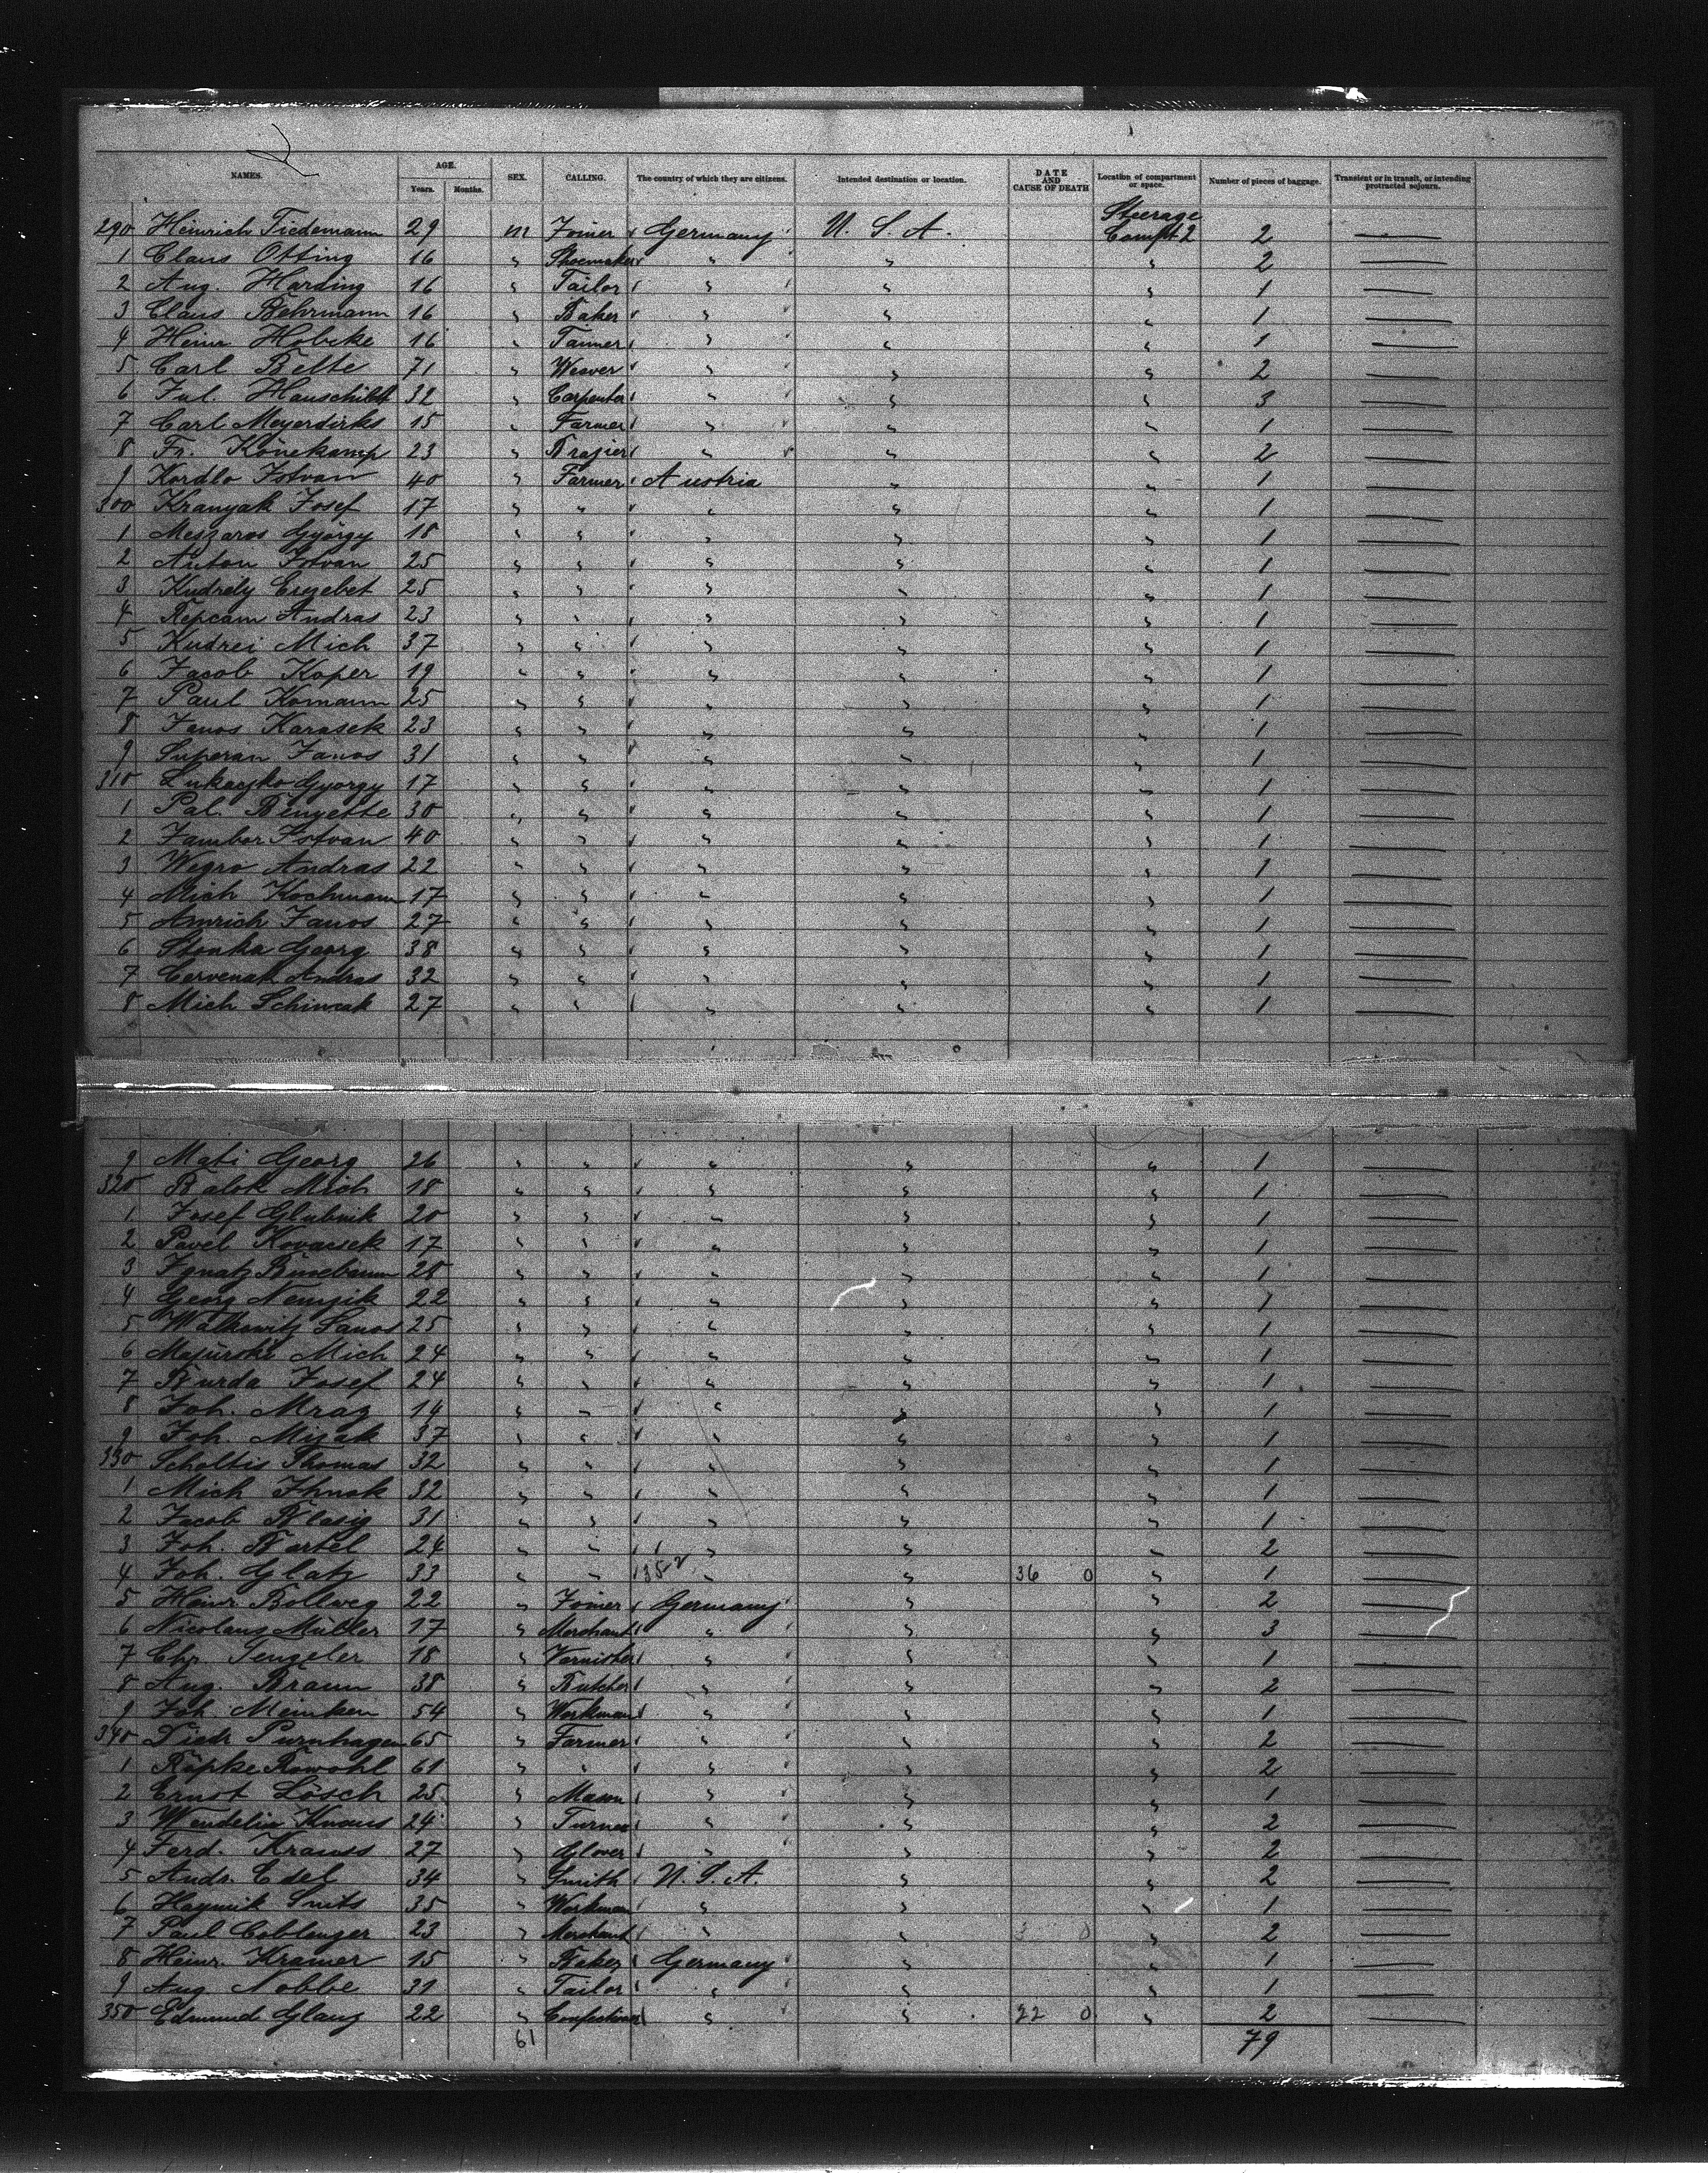 NAMES. AGE. SEX. CALLING. The country of which they are citizens. Intended destination or location. DATE AND CAUSE OF DEATH Location of compartment or space. Number of pieces of baggage. Transient or in transit, or intending protracted sojourn.
Years. Months.
Steerage
290 Heinrich Tiedemann 29 m Joiner Germany U. S. A. Compt 2 2 —
1 Claus Otting 16 " Shoemaker " " " 2 —
2 Aug. Harding 16 " Tailor " " " 1 —
3 Claus Behrmann 16 " Baker " " " 1 —
4 Heinr Hobcke 16 " Tanner " " " 1 —
5 Carl Belte 71 " Weaver " " " 2 —
6 Jul. Hauschildt 32 " Carpenter " " " 3 —
7 Carl Meyerdirks 15 " Farmer " " " 1 —
8 Fr. Könekamp 23 " Brazier " " " 2 —
9 Kordlo Istvan 40 " Farmer Austria " " 1 —
300 Kranyak Josef 17 " " " " " 1 —
1 Meszaros György 18 " " " " " 1 —
2 Anton Istvan 25 " " " " " 1 —
3 Kudrely Erzebet 25 " " " " " 1 —
4 Repcam Andras 23 " " " " " 1 —
5 Kudrei Mich 37 " " " " " 1 —
6 Jacob Koper 19 " " " " " 1 —
7 Paul Komann 25 " " " " " 1 —
8 Janos Karasek 23 " " " " " 1 —
9 Superan Janos 31 " " " " " 1 —
310 Lukaczko Gyorgy 17 " " " " " 1 —
1 Pal. Benyette 30 " " " " " 1 —
2 Jambor Istvan 40 " " " " " 1 —
3 Wegro Andras 22 " " " " " 1 —
4 Mich Kochmann 17 " " " " " 1 —
5 Amrich Janos 27 " " " " " 1 —
6 Georg 38 " " " " " 1 —
7 Cervenak Andras 32 " " " " " 1 —
8 Mich 27 " " " " " 1 —
9 Mati Georg 26 " " " " " 1 —
320 Balok Mich 18 " " " " " 1 —
1 Josef Glubnik 20 " " " " " 1 —
2 Pavel Kovacsek 17 " " " " " 1 —
3 Ignatz 28 " " " " " 1 —
4 Georg Nemzik 22 " " " " " 1 —
5 Malkowitz Janos 25 " " " " " 1 —
6 Majurski Mich 24 " " " " " 1 —
7 Burda Josef 24 " " " " " 1 —
8 Joh. Mraz 14 " " " " " 1 —
9 Joh. Misak 37 " " " " " 1 —
330 Scholtis Thomas 32 " " " " " 1 —
1 Mich Ihnak 32 " " " " " 1 —
2 Jacob Blasig 31 " " " " " 1 —
3 Joh. Bartel 24 " " " " " 2 —
4 Joh. Glatz 33 " " 35 " " 36 0 " 1 —
5 Heinr Bollweg 22 " Joiner Germany " " 2 —
6 Nicolaus Müller 17 " Merchant " " " 3 —
7 Chr. Tengeler 18 " Varnisher " " " 1 —
8 Aug. Braun 38 " Butcher " " " 2 —
9 Joh. Meinken 54 " Workman " " " 1 —
340 Diedr Purnhagen 65 " Farmer " " " 2 —
1 Röpke Rowohl 61 " " " " " 2 —
2 Ernst Lösch 25 " Mason " " " 1 —
3 Wendelin Knaus 24 " Turner " " " 2 —
4 Ferd. Krauss 27 " Glover " " " 2 —
5 Andr. Edel 34 " Smith U. S. A. " " 2 —
6 Smits 35 " Workman " " " 1 —
7 Paul Coblenzer 23 " Merchant " " 3 0 " 2 —
8 Heinr. Kramer 15 " Baker Germany " " 1 —
9 Aug Nobbe 31 " Tailor " " " 1 —
350 Edmund Glanz 22 " Confectioner " " 22 0 " 2 —
61 79